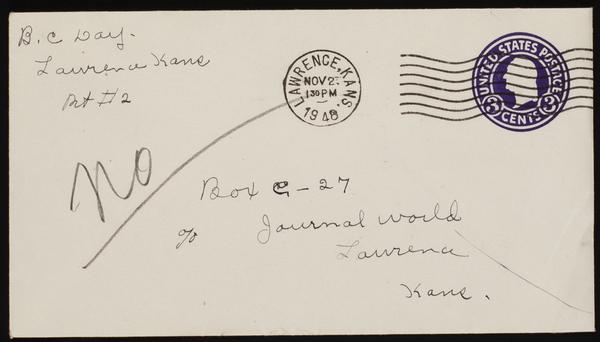 B. C Day.
Lawrence Kans
Rt #2
LAWRENCE, KANS.
NOV 2
1 30 PM
1948
UNITED STATES POSTAGE
3 CENTS 3
No
Box G-27
c/o Journal World
Lawrence
Kans.